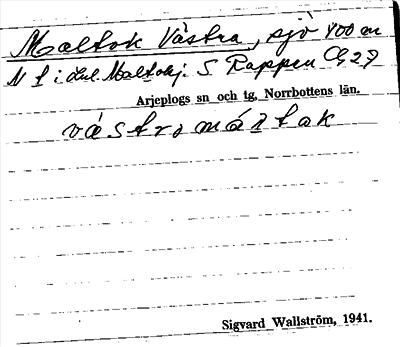 Maltok Västra, sjö 400 m
N f i del Maltokj. S Rappen Cg 29
Arjeplogs sn och tg, Norrbottens län.
västro máltok
Sigvard Wallström, 1941.